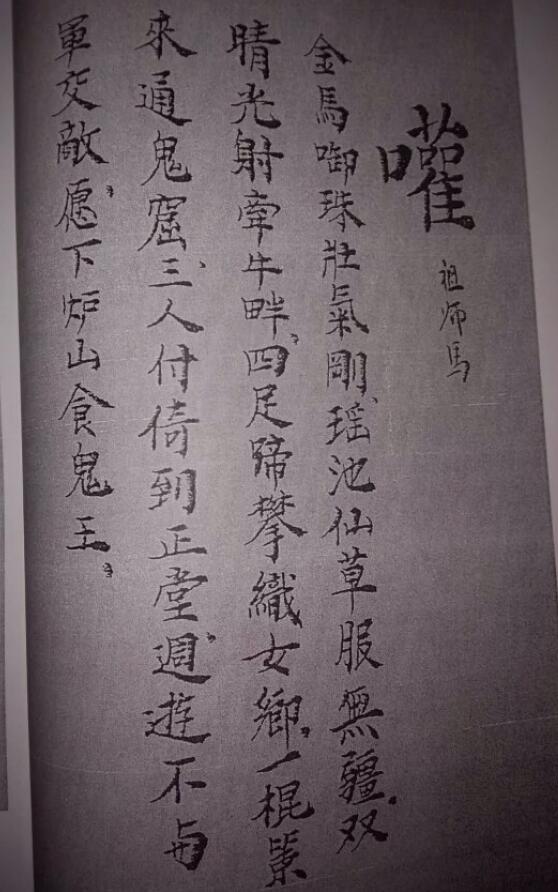 嚾
祖师馬
金馬啣珠壯氣剛、瑶池仙草服無疆。双
晴光射牽牛畔、四足蹄攀織女鄉、一棍
來通鬼窟、三人付倚到正堂、週遊不与
軍交敵、愿下炉山食鬼王、